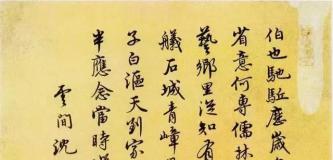 伯也馳駈塵歲
省意何專儒林
藝鄉里從知有
艤石城青嶂里
子白漚天到家
半應念當時
雲間沈